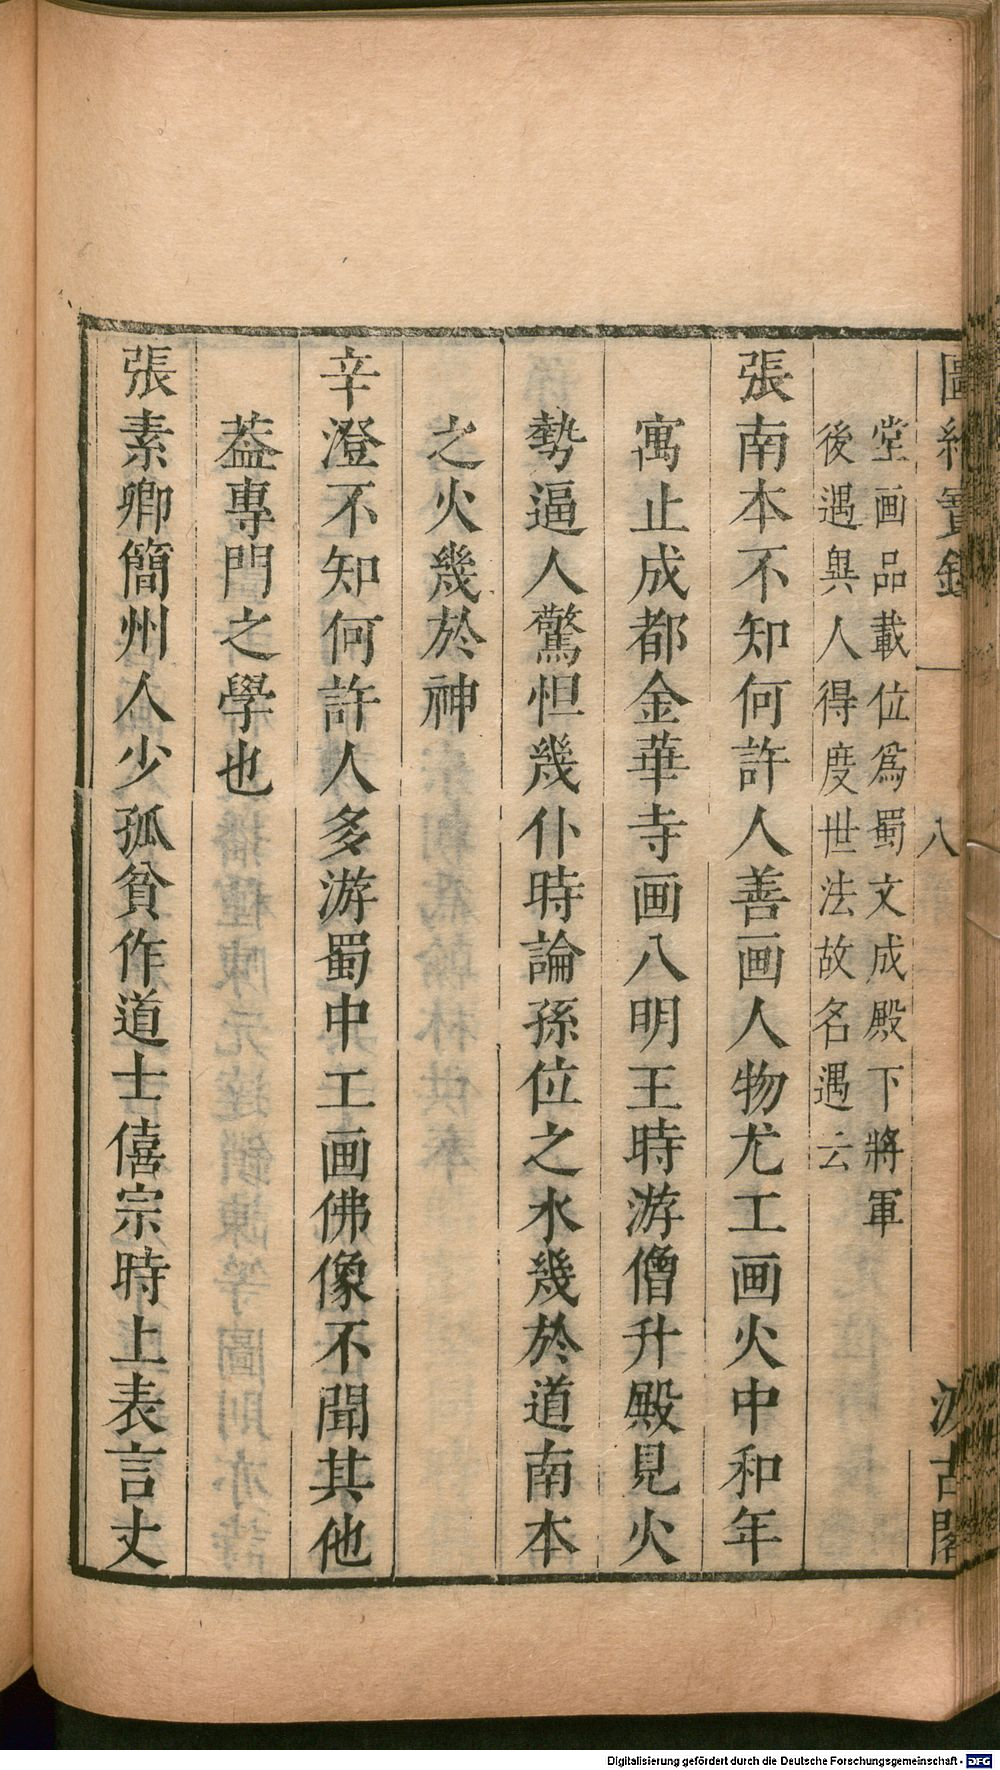 圖繪寶鑑
八
汲古閣
堂画品載位爲蜀文成殿下將軍
後遇異人得度世法故名遇云
張南本不知何許人善画人物尤工画火中和年
寓止成都金華寺画八明王時游僧升殿見火
勢逼人驚怛幾仆時論孫位之水幾於道南本
之火幾於神
辛澄不知何許人多游蜀中工画佛像不聞其他
葢專門之學也
張素卿簡州人少孤貧作道士僖宗時上表言丈
Digitalisierung gefördert durch die Deutsche Forschungsgemeinschaft - DFG